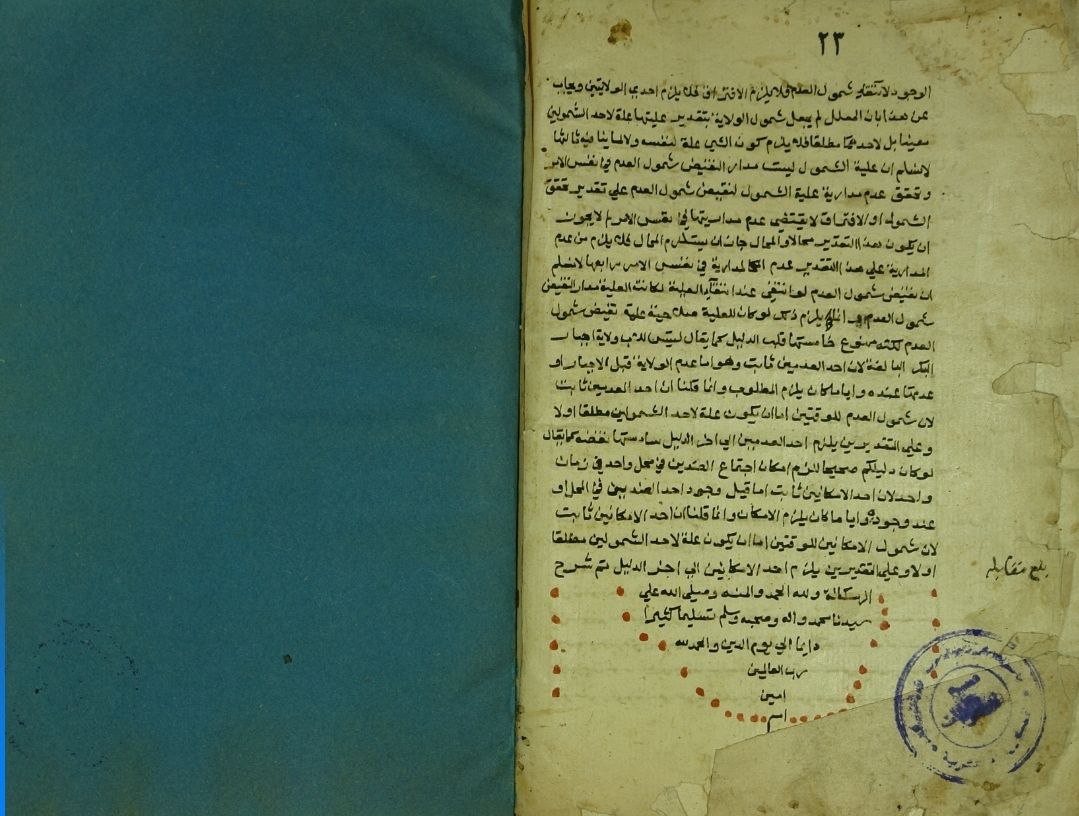 ٢٣
الوجود لانتفاء شمول العدم فلا يلزم الافتراق فلا يلزم احدي الولايتين ويجاب
عن هذا بان المعلل لم يجعل شمول الولاية بتقدير عليتها علة لاحد الشمولين
معينا بل لاحدهما مطلقا فلا يلزم كون الشي علة لنفسه ولا لما ينافيه ثالثها
لانسلم ان علية الشمول ليست مدار النقيض شمول العدم في نفس الامر
وتحقق عدم مدارية علية الشمول لنقيض شمول العدم علي تقدير تحقق
الشمول او الافتراق لا يقتضي عدم مداريتها في نفس الامر لم لا يجوز
ان يكون هذا التقدير محالا والمحال جاز ان يستلزم المحال فلا يلزم من عدم
المدارية علي هذا التقدير عدم المدارية في نفس الامر رابعها لانسلم
ان نقيض شمول العدم لو انتفي عند انتفاء العلية لكانت العلية مدار النقيض
شمول العدم وانما يلزم ذلك لو كان للعلية صلاحية علية نقيض شمول
العدم لكنه ممنوع خامستها قلب الدليل كما يقال ليس للاب ولاية اجبار
البكر البالغة لان احد العدمين ثابت وهو اما عدم الولاية قبل الاجبار او
عدمها عنده وايا ما كان يلزم المطلوب وانما قلنا ان احد العدمين ثابت
لان شمول العدم للوقتين اما ان يكون علة لاحد الشمولين مطلقا اولا
وعلي التقديرين يلزم احد العدمين الي اخر الدليل سادستها نقضه كما يقال
لو كان دليلكم صحيحا للزم امكان اجتماع الضدين في محل واحد في زمان
واحد لان احد الامكانين ثابت اما قبل وجود احد الضدين في المحل او
عند وجوده وايا ما كان يلزم الامكان وانما قلنا ان احد الامكانين ثابت
لان شمول الامكانين للوقتين اما ان يكون علة لاحد الشمولين مطلقا
اولا وعلي التقديرين يلزم احد الامكانين الي اخر الدليل تم شرح
بلغ مقابلة
الرسالة ولله الحمد والمنه وصلي الله علي
سيدنا محمد واله وصحبه وسلم تسليما كثيرا
دايما الي يوم الدين والحمد لله
رب العالمين
امين